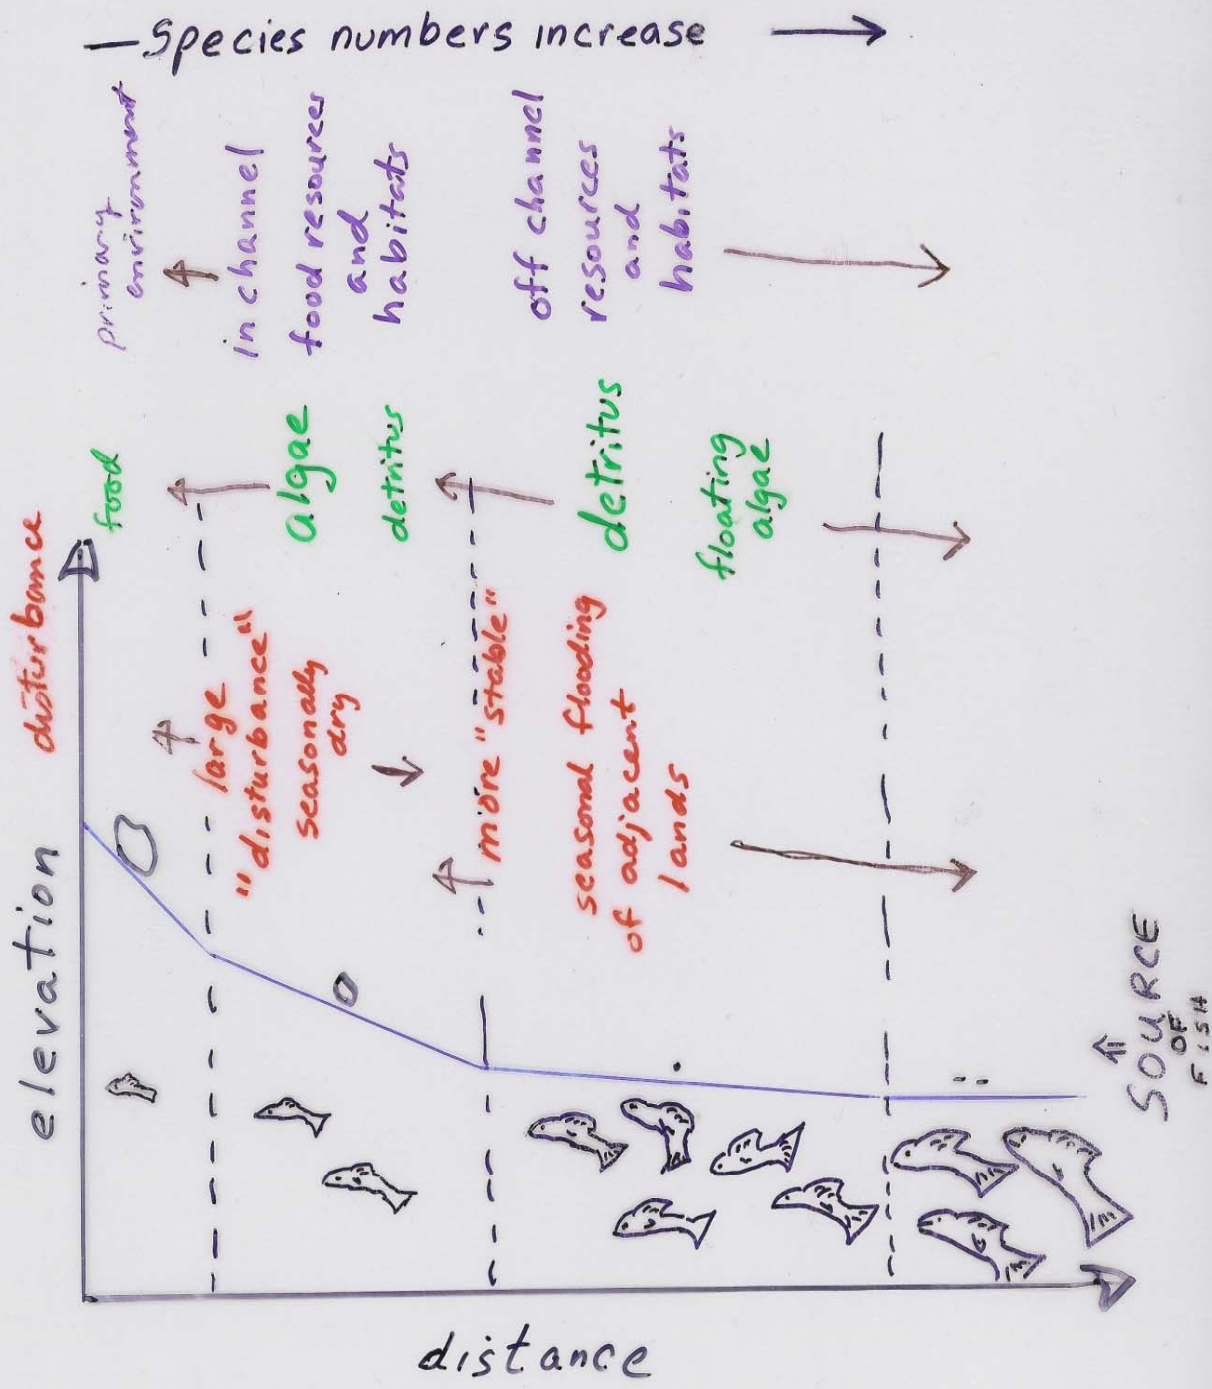 Species numbers increase
primary
environment
in channel
food resources
and
habitats
off channel
resources
and
habitats
food
algae
detritus
detritus
floating
algae
disturbance
large
"disturbance"
seasonally
dry
more "stable"
seasonal flooding
of adjacent
lands
elevation
SOURCE
OF
FISH
distance